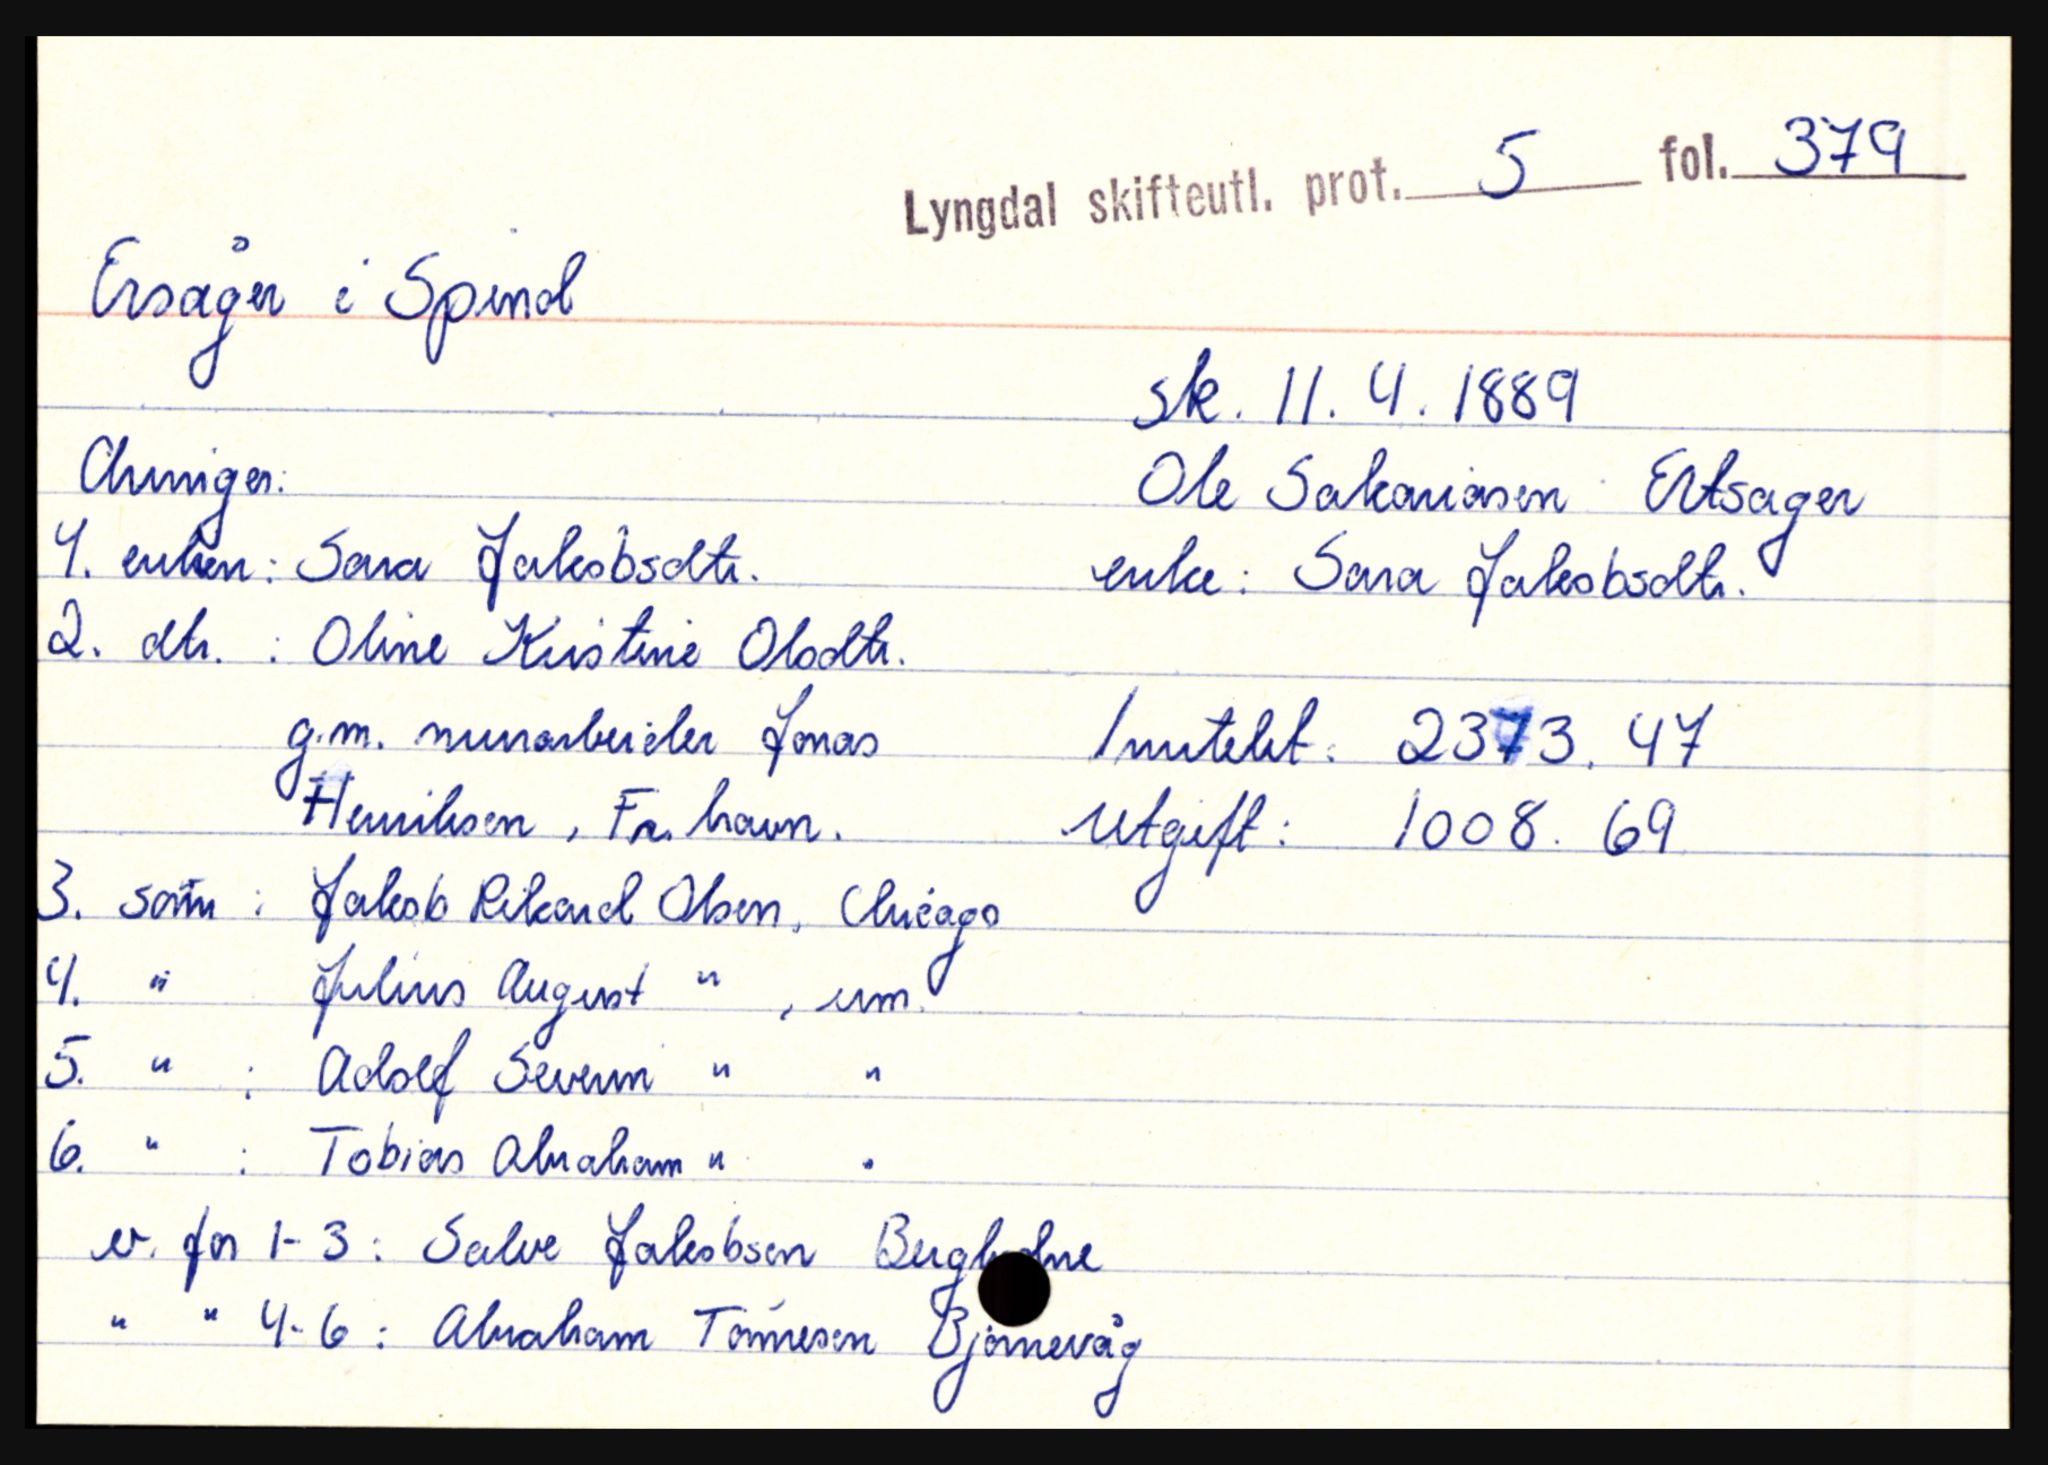 Lyngdal skifteutl. prot. 5 fol. 379
Ersåger i Spind
sk. 11. 4. 1889
Ole Sakariasen Ertsager
enke: Sara Jakobsdtr.
Inntekt: 2373.47
Utgift: 1008.69
Arvinger:
1. enken: Sara Jakobsdtr.
2. dtr. : Oline Kristine Olsdtr.
g.m. murarbeider Jonas
Henriksen, Fr.havn.
3. sønn : Jakob Rikard Olsen, Chicago
4. " Julius August " , um.
5. " : Adolf Severin " "
6. " : Tobias Abraham " "
v. for 1-3 : Salve Jakobsen Bergholne
" " 4-6 : Abraham Tønnesen Bjørnevåg